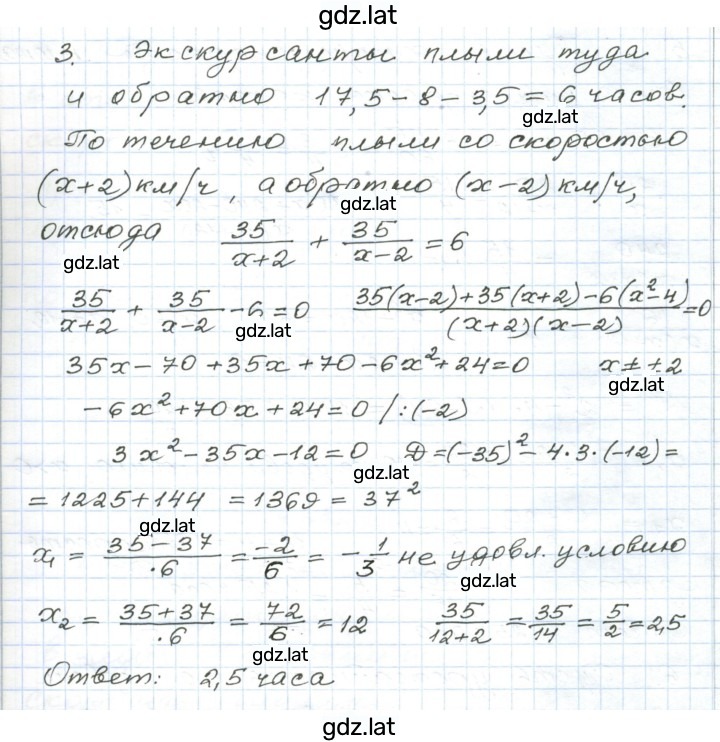 gdz.lat
3. Экскурсанты плыли туда
и обратно 17,5 - 8 - 3,5 = 6 часов.
gdz.lat
По течению плыли со скоростью
(x+2) км/ч, а обратно (x-2) км/ч,
gdz.lat
отсюда 35/(x+2) + 35/(x-2) = 6
gdz.lat
35/(x+2) + 35/(x-2) - 6 = 0 (35(x-2)+35(x+2)-6(x²-4))/((x+2)(x-2)) = 0
gdz.lat
35x - 70 + 35x + 70 - 6x² + 24 = 0 x ≠ ±2
gdz.lat
-6x² + 70x + 24 = 0 /:(-2)
3x² - 35x - 12 = 0 D = (-35)² - 4·3·(-12) =
gdz.lat
= 1225 + 144 = 1369 = 37²
gdz.lat
x₁ = (35-37)/·6 = -2/6 = -1/3 не удовл. условию
gdz.lat
x₂ = (35+37)/·6 = 72/6 = 12 35/(12+2) = 35/14 = 5/2 = 2,5
gdz.lat
Ответ: 2,5 часа
gdz.lat